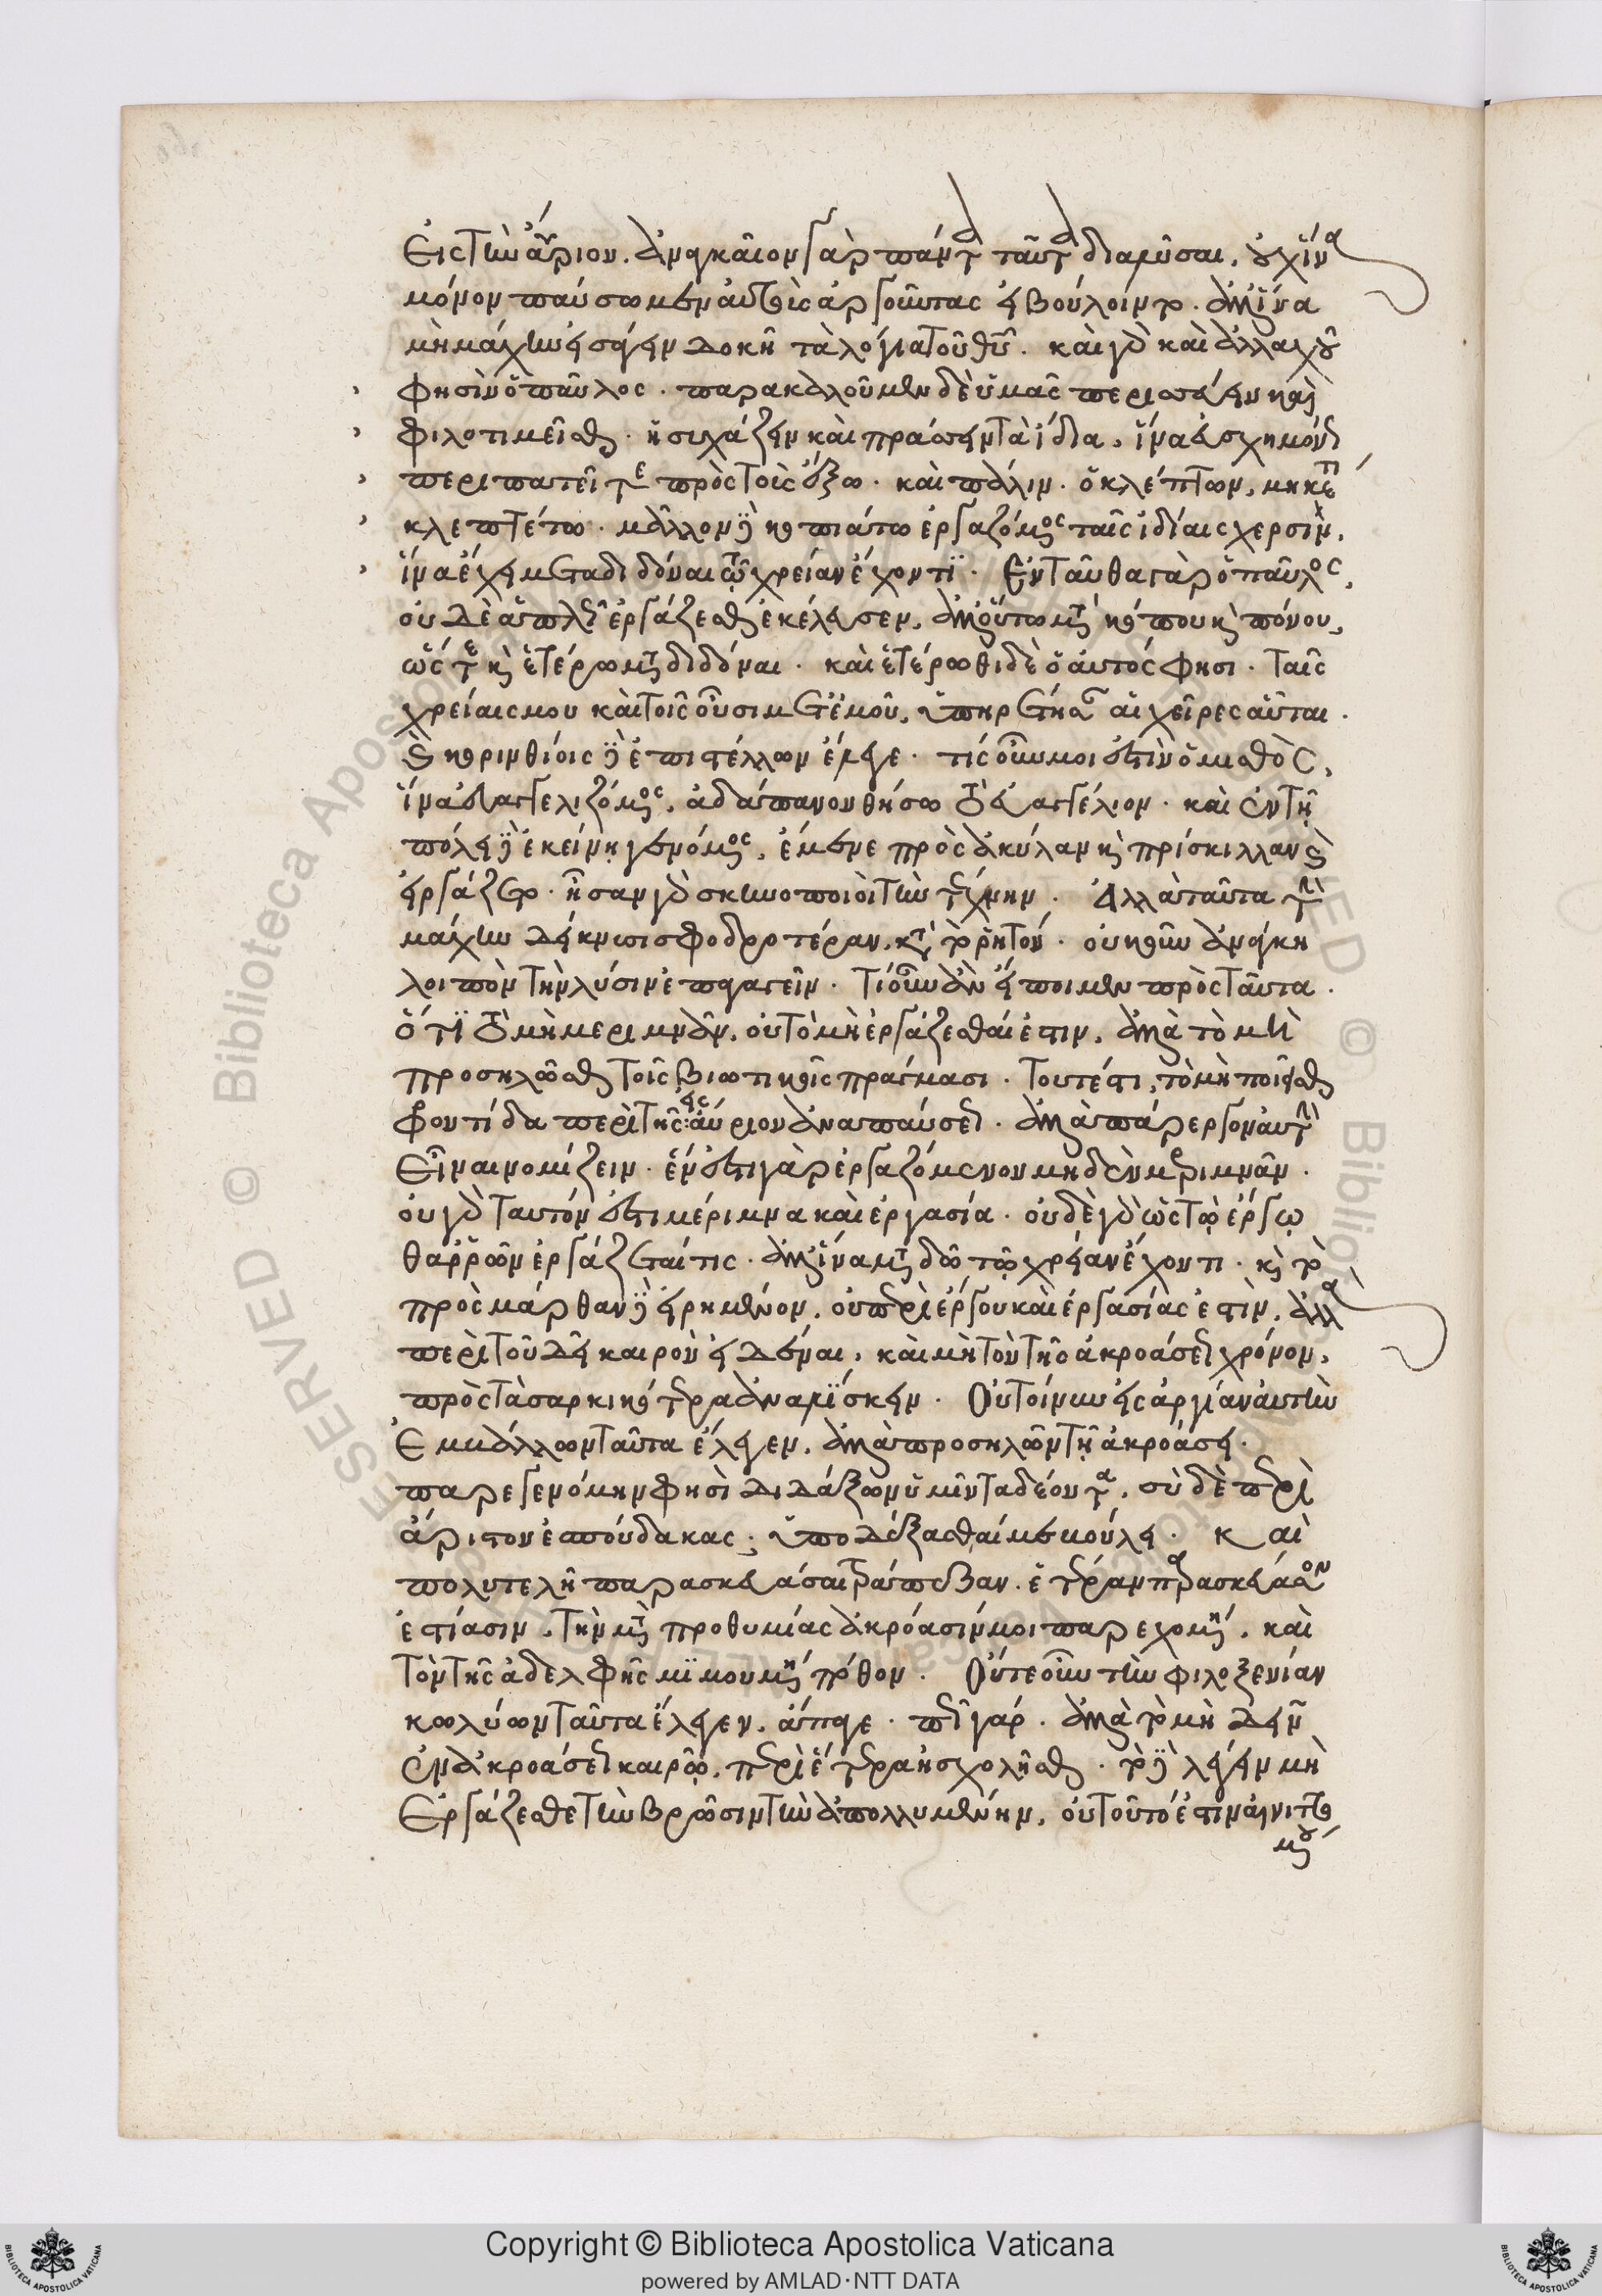 Εἰς τὴν αὔριον. ἀναγκαῖον γὰρ πάντα ταῦτα διαλῦσαι, οὐχ ἵνα
μόνον παύσωμεν αὐτοὺς ἀργοῦντας εἰ βούλοιντο. ἀλλ' ἵνα
μὴ μάχην εἰσάγειν δοκῆ τὰ λόγια τοῦ θυ. καὶ γὰρ καὶ ἀλλαχοῦ
φησὶν ὁ παῦλος. παρακαλοῦμεν δὲ ὑμᾶς περισσεύειν καὶ
φιλοτιμεῖσθαι. ἡσυχάζειν καὶ πράσσειν τὰ ἴδια, ἵνα εὐσχημόνως
περιπατεῖτε πρὸς τοὺς ἔξω. καὶ πάλιν. ὁ κλέπτων, μηκέτι
κλεπτέτω. μᾶλλον δὲ κοπιάτω ἐργαζόμενος ταῖς ἰδίαις χερσὶν,
ἵνα ἔχη μεταδιδόναι τῷ χρείαν ἔχοντι. Ἐνταῦθα γὰρ ὁ παῦλος,
οὐδὲ ἁπλῶς ἐργάζεσθαι ἐκέλευσεν, ἀλλ' οὕτω μετὰ κόπου καὶ πόνου,
ὥστε καὶ ἑτέρω μεταδιδόναι. καὶ ἑτέρωθι δὲ ὁ αὐτός φησι. ταῖς
χρείαις μου καὶ τοῖς οὖσι μετ' ἐμοῦ, ὑπηρέτησαν αἱ χεῖρες αὗται.
κορινθίοις δὲ ἐπιστέλλων ἔλεγε. τίς οὖν μοι ἐστὶν ὁ μισθὸς,
ἵνα εὐαγγελιζόμενος, ἀδάπανον θήσω τὸ εὐαγγέλιον. καὶ ἐν τῆ
πόλει δὲ ἐκείνη γενόμενος, ἔμενε πρὸς ἀκύλαν καὶ πρίσκιλλαν καὶ
εἰργάζετο. ἦσαν γὰρ σκηνοποιοὶ τὴν τέχνην. Ἀλλὰ ταῦτα τὴν
μάχην δείκνυσι σφοδροτέραν, κατὰ τὸ ῥητόν. οὐκοῦν ἀνάγκη
λοιπὸν τὴν λύσιν ἐπαγαγεῖν. Τί οὖν ἂν εἴποιμεν πρὸς ταῦτα.
ὅτι τὸ μὴ μεριμνᾶν, οὐ τὸ μὴ ἐργάζεσθαί ἐστιν, ἀλλὰ τὸ μὴ
προσηλῶσθαι τοῖς βιωτικοῖς πράγμασι. Τουτέστι, τὸ μὴ ποιεῖσθαι
φροντίδα περὶ τῆς εἰς αὔριον ἀναπαύσεως. ἀλλὰ πάρεργον αὐτὴν
Εἶναι νομίζειν. ἔνεστι γὰρ ἐργαζόμενον μηδὲν μεριμνᾶν.
οὐ γὰρ ταυτόν ἐστι μέριμνα καὶ ἐργασία. οὐδὲ γὰρ ὡς τῷ ἔργῳ
θαῤῥῶν ἐργάζεταί τις. ἀλλ' ἵνα μεταδῶ τῷ χρείαν ἔχοντι. καὶ τὸ
πρὸς μάρθαν δὲ εἰρημένον, οὐ περὶ ἔργου καὶ ἐργασίας ἐστὶν, ἀλλὰ
περὶ τοῦ δεῖ καιρὸν εἰδέναι, καὶ μὴ τὸν τῆς ἀκροάσεως χρόνον,
πρὸς τὰ σαρκικώτερα ἀναλίσκειν. Οὐ τοίνυν εἰς ἀργίαν αὐτὴν
Ἐμβάλλων ταῦτα ἔλεγεν, ἀλλὰ προσηλῶν τῆ ἀκροάσει.
παρεγενόμην φησὶ διδάξων ὑμῖν τὰ δέοντα, σὺ δὲ περὶ
ἄριστον ἐσπούδακας. ὑποδέξασθαί με βούλει. καὶ
πολυτελῆ παρασκευάσαι τράπεζαν. ἑτέραν παρασκεύασον
ἑστίασιν, τὴν μετὰ προθυμίας ἀκρόασίν μοι παρεχομένη, καὶ
τὸν τῆς ἀδελφῆς μιμουμένη πόθον. Οὔτε οὖν τὴν φιλοξενίαν
κωλύων ταῦτα ἔλεγεν, ἄπαγε. πῶς γάρ. ἀλλὰ τὸ μὴ δεῖν
ἐν ἀκροάσεως καιρῷ, περὶ ἕτερα ἠσχολῆσθαι. τὸ δὲ λέγειν μὴ
Ἐργάζεσθε τὴν βρῶσιν τὴν ἀπολλυμένην, οὐ τοῦτό ἐστιν αἰνιττο
μένου